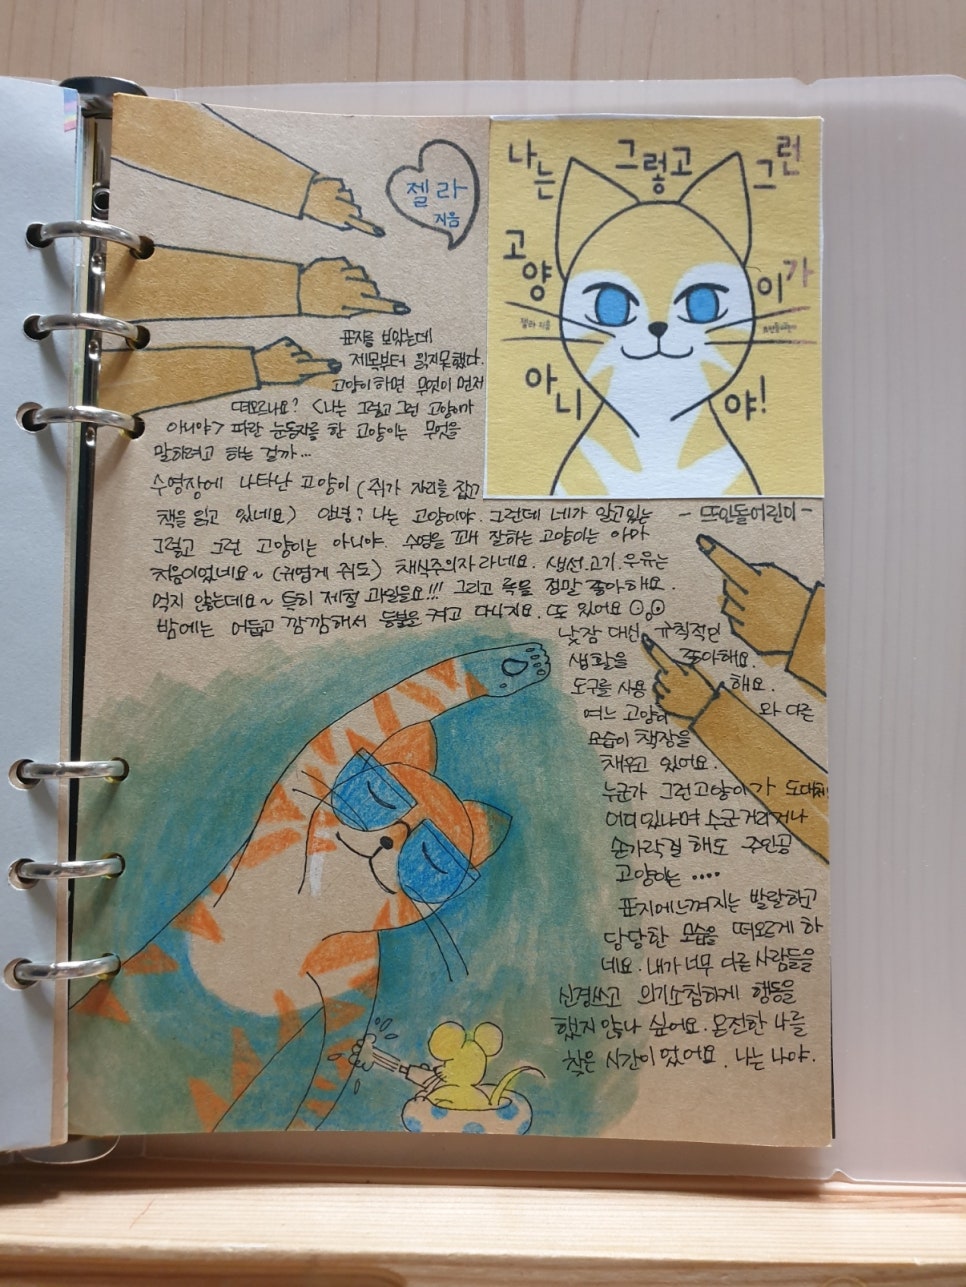 젤라
지음
나는 그렇고 그런
고양이가
아니야!
표지를 보았는데
제목부터 읽지못했다.
고양이하면 무엇이 먼저
떠오르나요? <나는 그렇고 그런 고양이가
아니야> 파란 눈동자를 한 고양이는 무엇을
말하려고 하는 걸까...
수영장에 나타난 고양이 (쥐가 자리를 잡고
책을 읽고 있네요) 안녕? 나는 고양이야. 그런데 네가 알고있는
그렇고 그런 고양이는 아니야. 수영을 꽤 잘하는 고양이는 아마
처음이었네요~ (귀엽게 쥐도) 채식주의자라네요. 생선.고기.우유는
먹지 않는데요~ 특히 제철 과일을요!!! 그리고 목욕을 정말 좋아해요.
밤에는 어둡고 깜깜해서 등불을 켜고 다니지요. 또 있어요
- 뜨인돌어린이 -
낮잠 대신 규칙적인
생활을 좋아해요.
도구를 사용 해요.
여느 고양이 와 다른
모습이 책장을
채우고 있어요.
누군가 그런고양이가 도대체
어디있냐며 수군거리거나
손가락질 해도 주인공
고양이는 ....
표지에느껴지는 발랄하고
당당한 모습을 떠오르게 하
네요. 내가 너무 다른 사람들을
신경쓰고 의기소침하게 행동을
했지 않나 싶어요. 온전한 나를
찾은 시간이었어요. 나는 나야.